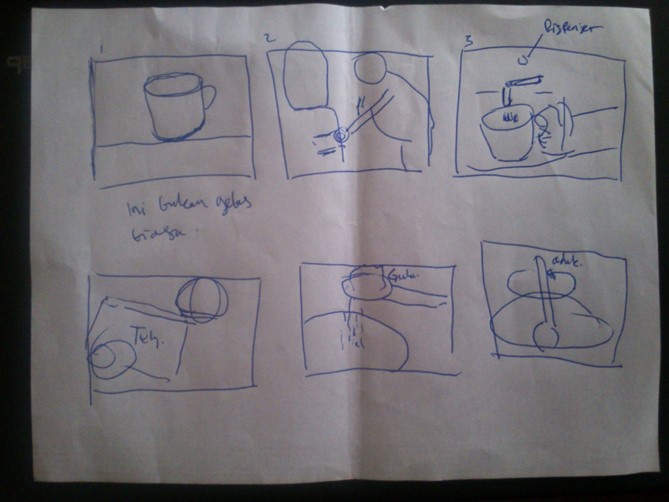 1
2
3
Dispenser
Ini bukan gelas
biasa.
Teh.
Gula.
aduk.